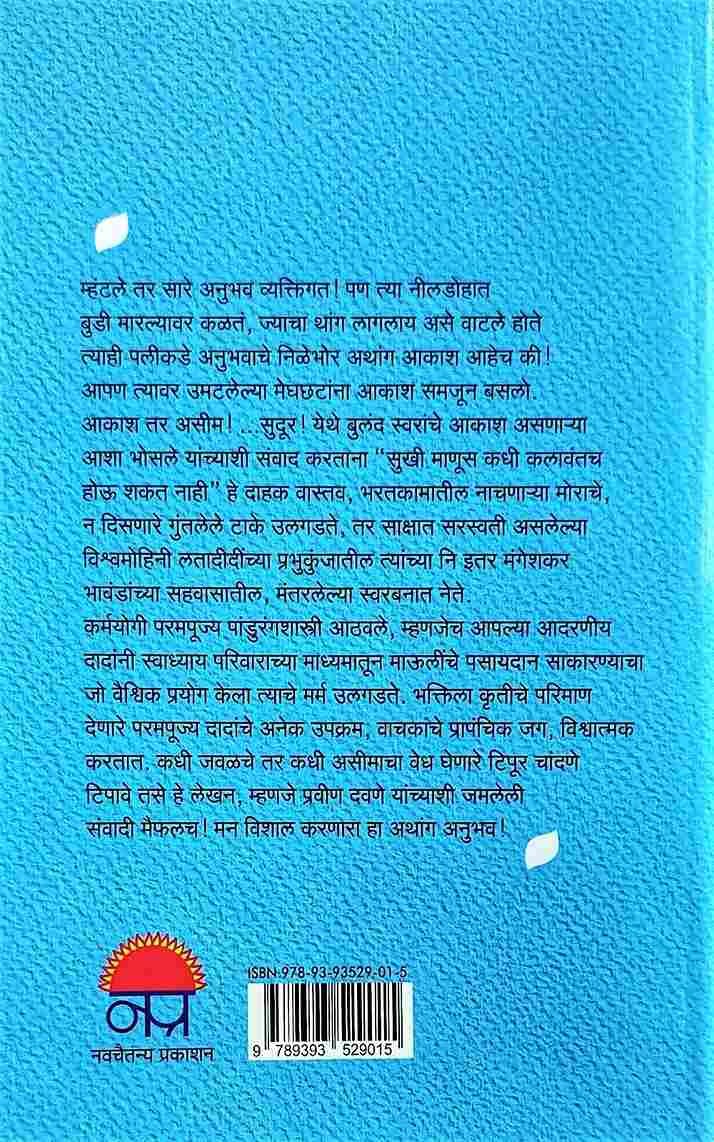 म्हंटले तर सारे अनुभव व्यक्तिगत! पण त्या नीलडोहात
बुडी मारल्यावर कळतं, ज्याचा थांग लागलाय असे वाटले होते
त्याही पलीकडे अनुभवाचे निळेभोर अथांग आकाश आहेच की!
आपण त्यावर उमटलेल्या मेघछटांना आकाश समजून बसलो.
आकाश तर असीम! ...सुदूर! येथे बुलंद स्वरांचे आकाश असणाऱ्या
आशा भोसले यांच्याशी संवाद करताना "सुखी माणूस कधी कलावंतच
होऊ शकत नाही" हे दाहक वास्तव, भरतकामातील नाचणाऱ्या मोराचे,
न दिसणारे गुंतलेले टाके उलगडते, तर साक्षात सरस्वती असलेल्या
विश्वमोहिनी लतादीदींच्या प्रभुकुंजातील त्यांच्या नि इतर मंगेशकर
भावंडांच्या सहवासातील, मंतरलेल्या स्वरबनात नेते.
कर्मयोगी परमपूज्य पांडुरंगशास्त्री आठवले, म्हणजेच आपल्या आदरणीय
दादांनी स्वाध्याय परिवाराच्या माध्यमातून माऊलींचे पसायदान साकारण्याचा
जो वैश्विक प्रयोग केला त्याचे मर्म उलगडते. भक्तिला कृतीचे परिमाण
देणारे परमपूज्य दादांचे अनेक उपक्रम, वाचकांचे प्रापंचिक जग, विश्वात्मक
करतात. कधी जवळचे तर कधी असीमाचा वेध घेणारे टिपूर चांदणे
टिपावे तसे हे लेखन, म्हणजे प्रवीण दवणे यांच्याशी जमलेली
संवादी मैफलच! मन विशाल करणारा हा अथांग अनुभव!
नप्र
नवचैतन्य प्रकाशन
ISBN:978-93-93529-01-5
9 789393 529015